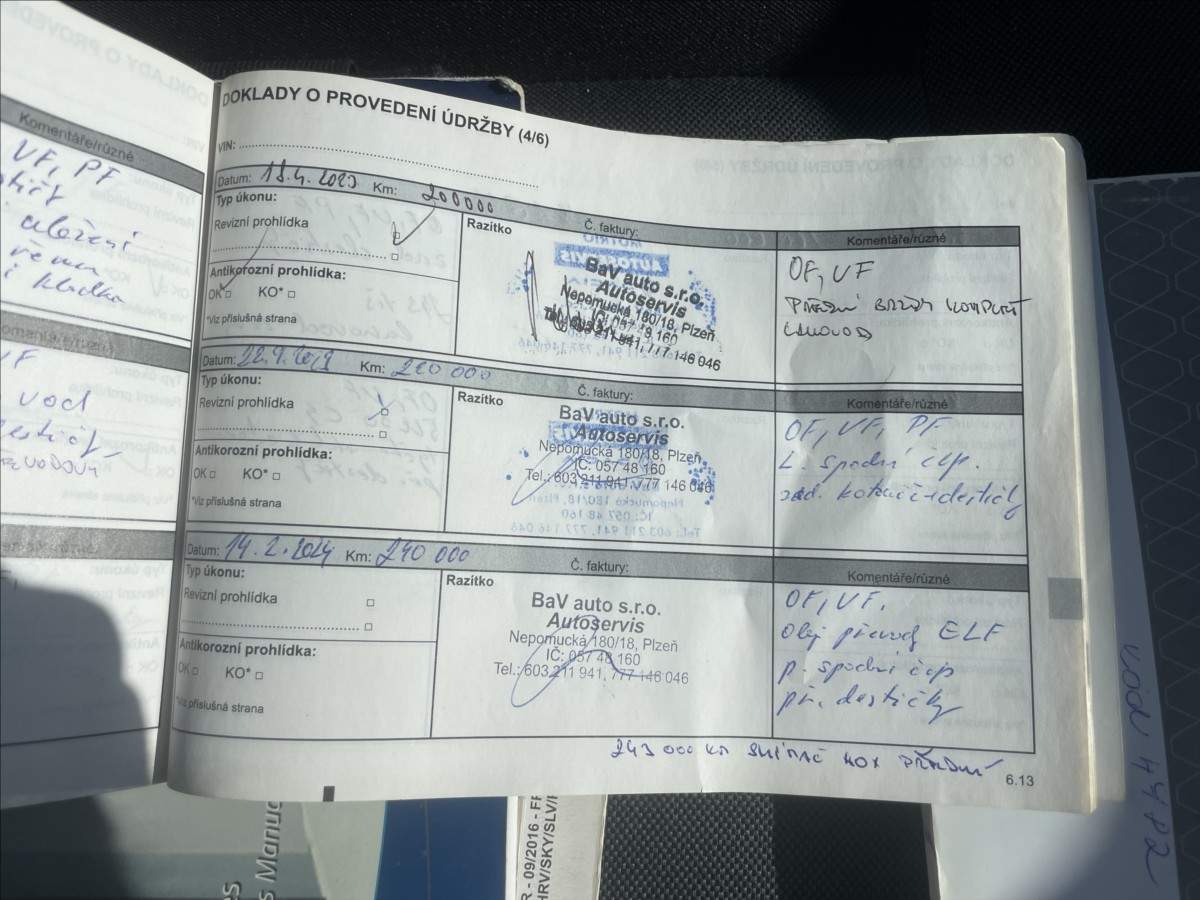 Komentáře/různé
VF, PF
uložení
kladka
VF
DOKLADY O PROVEDENÍ ÚDRŽBY (4/6)
VIN:
Datum: 18.4.2023 Km: 200000
Typ úkonu:
Revizní prohlídka
Antikorozní prohlídka:
OK □ KO* □
*Viz příslušná strana
Razítko
Č. faktury:
AUTOSERVIS
BaV auto s.r.o.
Autoservis
Nepomucká 180/18, Plzeň
IČ: 057 48 160
Tel.: 603 211 941, 777 146 046
Komentáře/různé
OF, VF
PŘEDNÍ BRZDY KOMPLET
LANOVOD
Datum: Km: 220 000
Typ úkonu:
Revizní prohlídka
Antikorozní prohlídka:
OK □ KO* □
*Viz příslušná strana
Razítko
Č. faktury:
BaV auto s.r.o.
Autoservis
Nepomucká 180/18, Plzeň
IČ: 057 48 160
Tel.: 603 211 941, 777 146 046
Komentáře/různé
OF, VF, PF
L. spodní čep.
zad. kotouče+destičky
Datum: 14.2.2024 Km: 240 000
Typ úkonu:
Revizní prohlídka
Antikorozní prohlídka:
OK □ KO* □
*Viz příslušná strana
Razítko
Č. faktury:
BaV auto s.r.o.
Autoservis
Nepomucká 180/18, Plzeň
IČ: 057 48 160
Tel.: 603 211 941, 777 146 046
Komentáře/různé
OF, VF.
Olej převod ELF
p. spodní čep
př. destičky
243 000 KM SNÍMAČ NOX PŘEDNÍ
6.13
R - 09/2016 - FR
HRV/SKY/SLV/